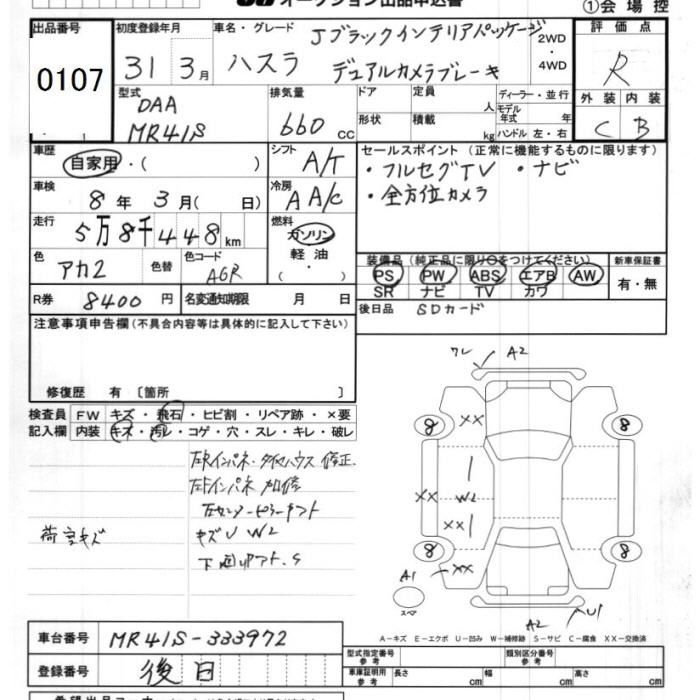 オークション出品申込書
①会場控
出品番号
0107
初度登録年月
31 3月
車名・グレード
ハスラ
Jブラックインテリアパッケージ
デュアルカメラブレーキ
2WD
・
4WD
評価点
R
外装 内装
C B
型式
DAA
MR41S
排気量
660 cc
ドア
形状
定員
人
積載
kg
ディーラー・並行
モデル
年式 年
ハンドル 左・右
車歴
自家用・( )
シフト
A/T
車検
8年 3月( 日)
冷房
A A/c
走行
5万8千448km
燃料
ガソリン
軽油
・
色
アカ2
色替
色コード
AGR
R券 8400円
名変通知期限 月 日
セールスポイント(正常に機能するものに限ります)
・フルセグTV ・ナビ
・全方位カメラ
装備品(純正品に限り○をつけてください)
PS PW ABS エアB AW
SR ナビ TV カワ
新車保証書
有・無
後日品 SDカード
注意事項申告欄(不具合内容等は具体的に記入して下さい)
修復歴 有〔箇所 〕
検査員
記入欄
FW キズ・飛石・ヒビ割・リペア跡・×要
内装 キズ・汚レ・コゲ・穴・スレ・キレ・破レ
左Rインパネ・タイヤハウス 修正.
左Fインパネ 加修
左センターピラーナット
荷室キズ
キズU W2
下廻りサフト.S
ワレ A2
8 ×× 8
××
W2
××
8 ×× 8
A1
スペア
A2 U1
A−キズ E−エクボ U−凹み W−補修跡 S−サビ C−腐食 ××−交換済
車台番号 MR41S-333972
登録番号 後日
型式指定番号
参考
類別区分番号
参考
車庫証明用
参考
長さ cm
幅 cm
高さ cm